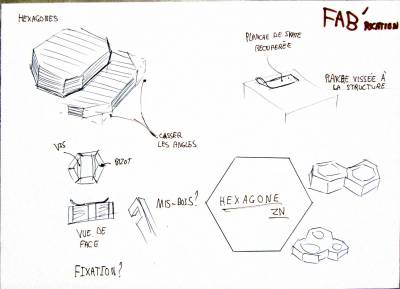 HEXAGONES
FAB'
RICATION
PLANCHE DE SKATE
RÉCUPÉRÉE
PLANCHE VISSÉE À
LA STRUCTURE
CASSER
LES ANGLES
VIS
BIZOT
MIS-BOIS?
HEXAGONE
ZN
VUE DE
FACE
FIXATION?